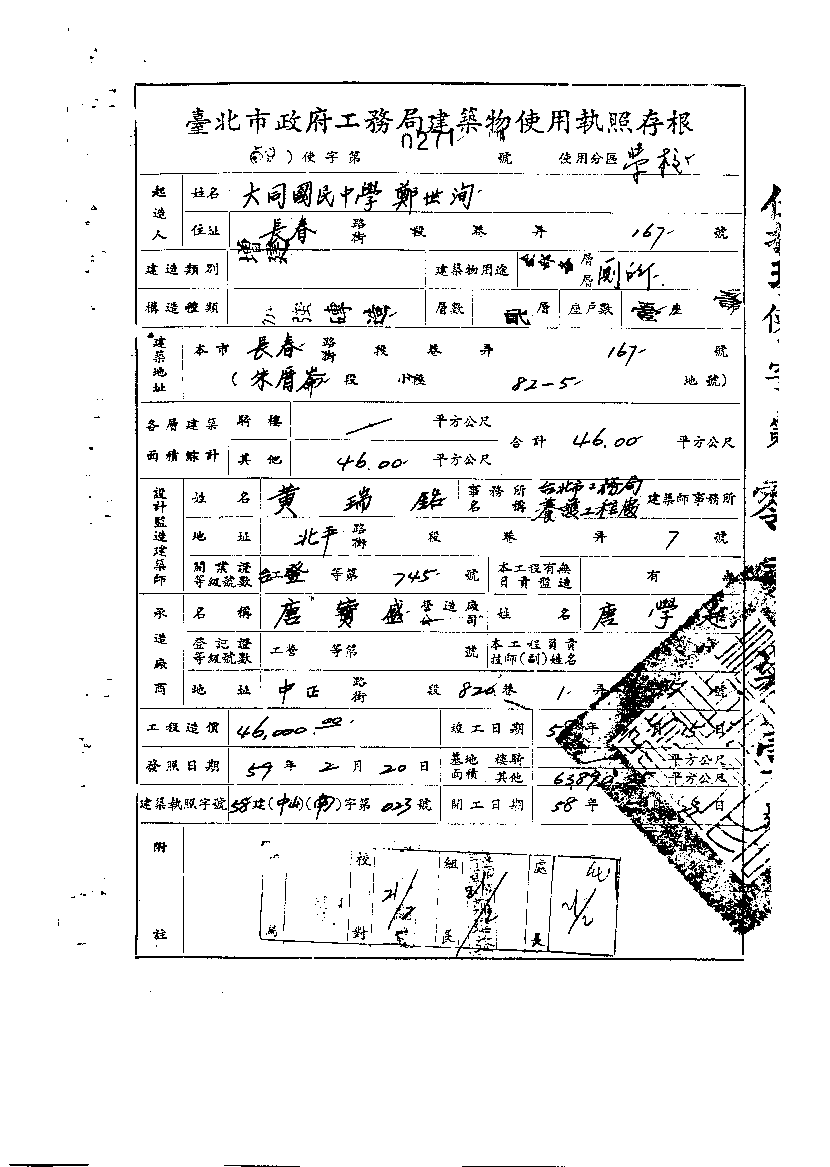 臺北市政府工務局建築物使用執照存根
(59)使字第 0271 號 使用分區 學校
起造人 姓名 大同國民中學 鄭世洵
住址 長春 路街 段 巷 弄 167 號
建造類別 增建 建築物用途 層層 厠所
構造體類 加強磚造 層數 貳 層 座戶數 壹 座
建築地址 本市 長春 路街 段 巷 弄 167 號
(朱厝崙 段 小段 82-5 地號)
各層建築面積綜計 騎樓 平方公尺 合計 46.00 平方公尺
其他 46.00 平方公尺
設計監造建築師 姓名 黃瑞銘 事務所名稱 台北市工務局養護工程處 建築師事務所
地址 北平 路街 段 巷 弄 7 號
開業證等級號數 台工登 等第 745 號 本工程有無負責監造 有
承造廠商 名稱 唐寶盛 營造廠公司 姓名 唐學
登記證等級號數 工營 等第 號 本工程負責技師(副)姓名
地址 中正 路街 段 826 巷 1 弄 號
工程造價 46,000.00 竣工日期 58 年 15 日
發照日期 59 年 2 月 20 日 基地面積 樓騎 平方公尺
其他 平方公尺
建築執照字號 58建(中山)(南)字第 023 號 開工日期 58 年 日
附註
校對 組 民 處長